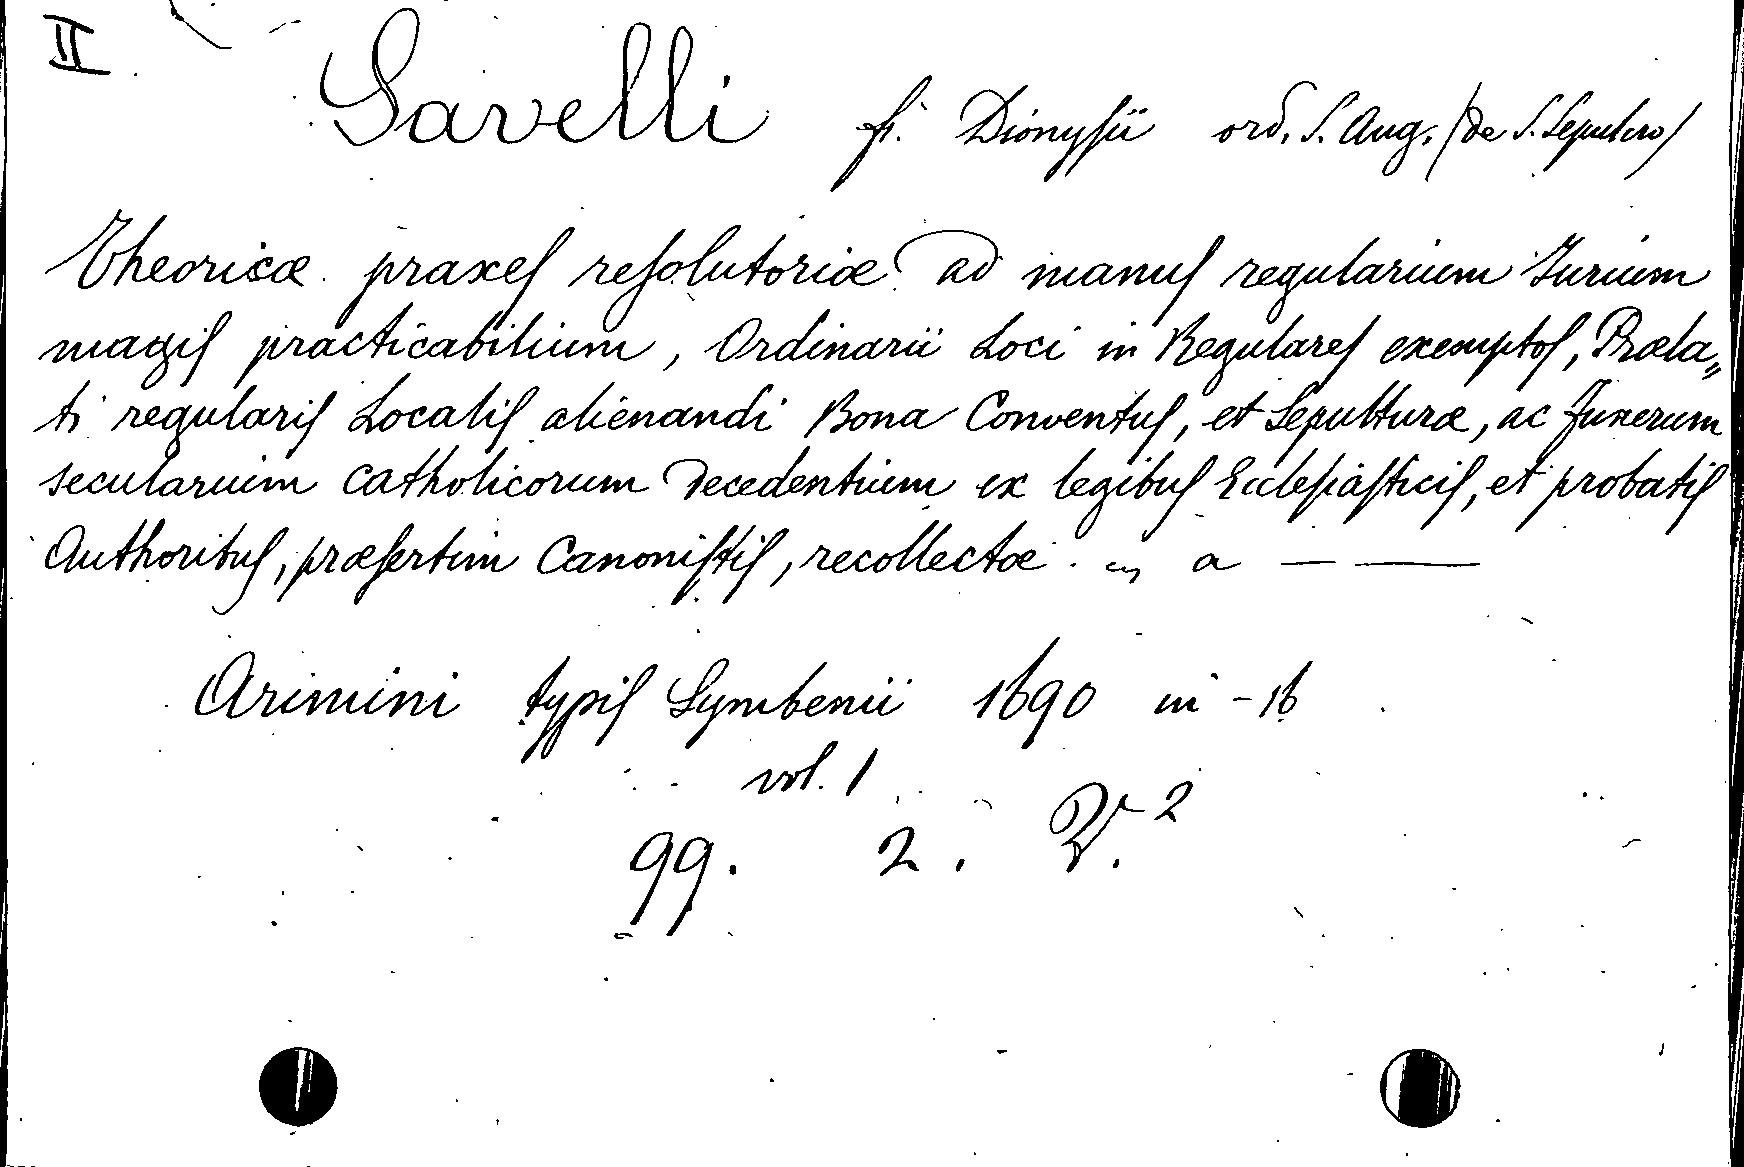 II
Savelli fr. Dionysii ord. S. Aug. (de S. Sepulcro)
Theoricæ praxes resolutoriæ ad manus regularium Jurium
magis practicabilium, Ordinarii Loci in Regulares exemptos, Præla„
ti regularis Localis alienandi Bona Conventus, et Sepulturæ, ac funerum
secularium catholicorum decedentium ex legibus Ecclesiasticis, et probatis
Authoribus, præsertim Canonistis, recollectæ. a — —
Arimini typis Symbenii 1690 in - 16
vol. 1
99. 2. V. 2